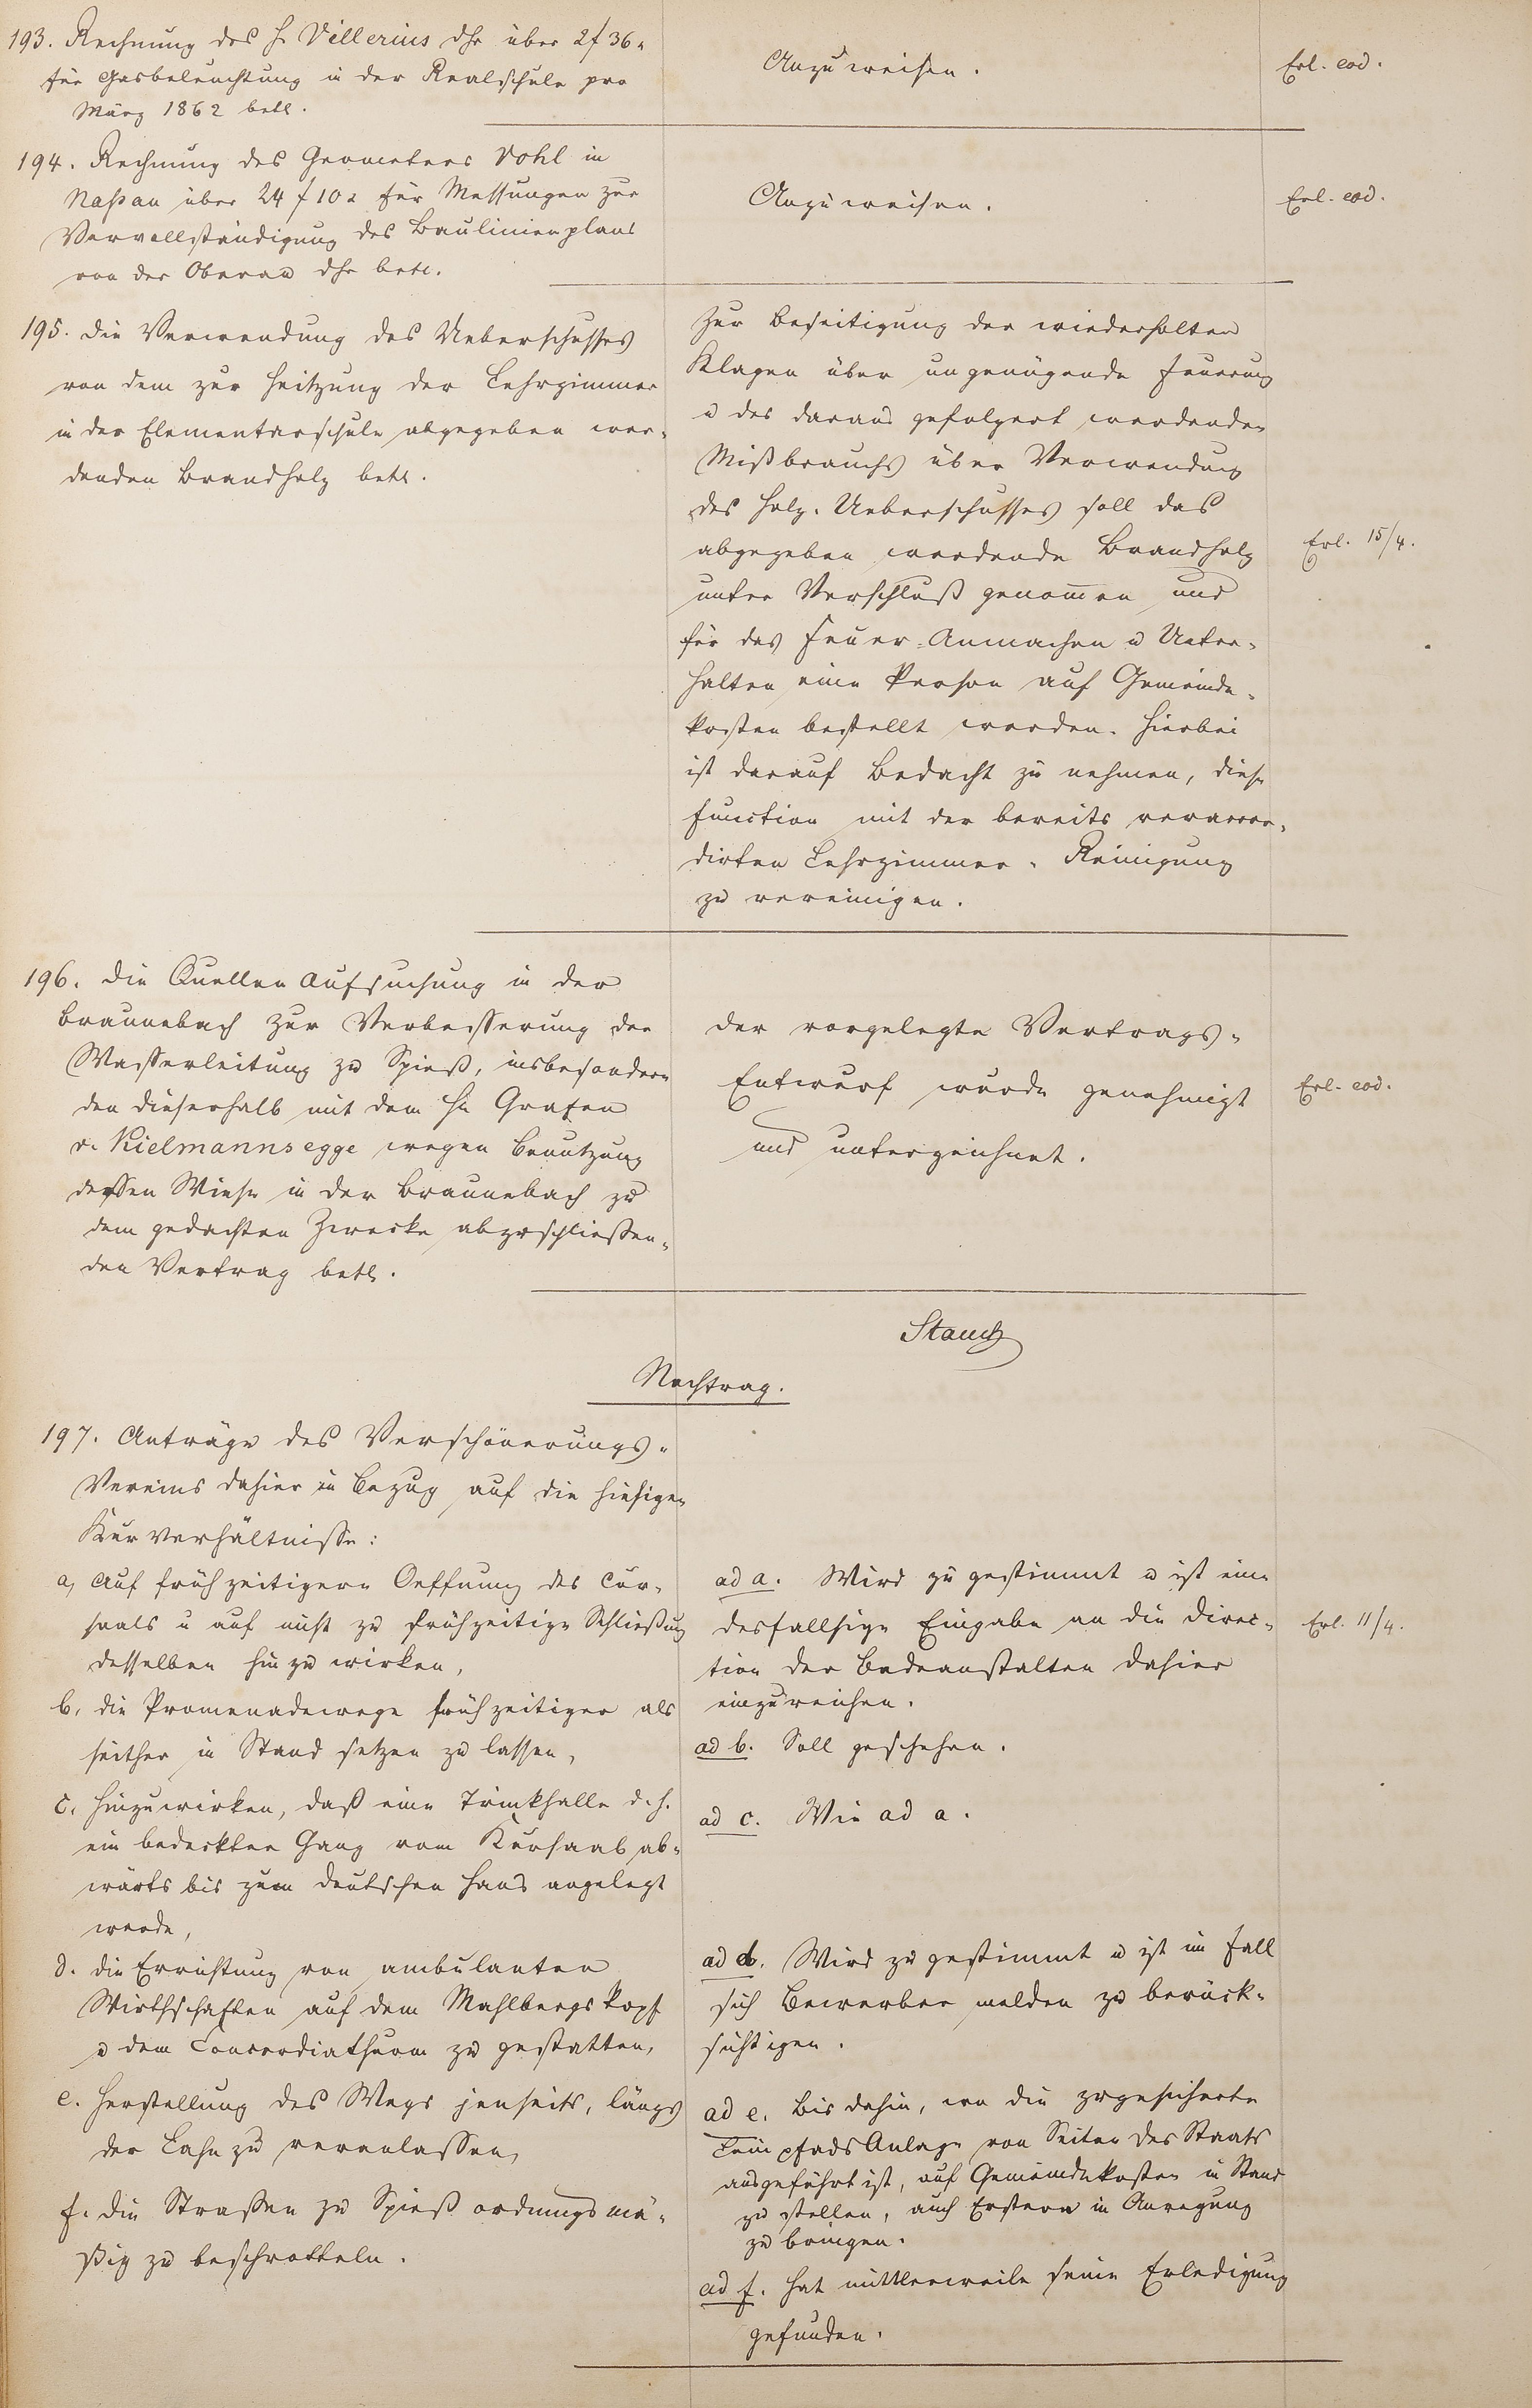 193. Rechnung des H. Villerius dhr über 2 f 36 x
für Gasbeleuchtung in der Realschule pro
März 1862 betr.
Anzuweisen.
Erl. eod.
194. Rechnung des Geometers Vohl in
Naßau über 24 f 10 x für Messungen zur
Vervollständigung des Baulinienplans
von der Oberau dhr betr.
Anzuweisen.
Erl. eod.
195. Die Verwendung des Ueberschusses
von dem zur Heitzung der Lehrzimmer
in der Elementarschule abgegeben wer-
denden Brandholz betr.
Zur Beseitigung der wiederholten
Klagen über ungenügende Feuerung
u des daraus gefolgert werdenden
Mißbrauchs über Verwendung
des Holz-Ueberschusses soll das
abgegeben werdende Brandholz
unter Verschluß genomen und
für das Feuer-Anmachen u Unter-
halten eine Person auf Gemeinde-
kosten bestellt werden. Hierbei
ist darauf Bedacht zu nehmen, diese
Function mit der bereits veraccor-
dirten Lehrzimmer-Reinigung
zu vereinigen.
Erl. 15/4.
196. Die Quellen Aufsuchung in der
Braunebach zur Verbesserung der
Wasserleitung zu Spieß, insbesondere
den dieserhalb mit dem Hn Grafen
v. Kielmannsegge wegen Benutzung
dessen Wiese in der Braunebach zu
dem gedachten Zwecke abzuschließen-
den Vertrag betr.
Der vorgelegte Vertrags-
Entwurf wurde genehmigt
und unterzeichnet.
Erl. eod.
Stauch
Nachtrag.
197. Anträge des Verschönerungs-
Vereins dahier in Bezug auf die hiesigen
Kurverhältnisse:
a, Auf frühzeitigere Oeffnung des Cur-
saals u auf nicht zu frühzeitige Schließung
desselben hinzuwirken,
ad a. Wird zugestimmt u ist eine
desfallsige Eingabe an die Direc-
tion der Badeanstalten dahier
einzureichen.
Erl. 11/4.
b, die Promenadewege frühzeitiger als
seither in Stand setzen zu lassen,
ad b. Soll geschehen.
c, hinzuwirken, daß eine Trinkhalle d.h.
ein bedeckter Gang vom Kursaal ab-
wärts bis zum deutschen Haus angelegt
werde,
ad c. Wie ad a.
d. die Errichtung von ambulanten
Wirthschaften auf dem Mahlbergskopf
u dem Concordiathurm zu gestatten,
ad d. Wird zugestimmt u ist im Fall
sich Bewerber melden zu berück-
sichtigen.
e. Herstellung des Wegs jenseits, längs
der Lahn zu veranlassen,
ad e. Bis dahin, wo die zugesicherte
Leinpfads Anlage von Seiten des Staats
ausgeführt ist, auf Gemeindekosten in Stand
zu stellen, auch Erstere in Anregung
zu bringen.
f. die Straßen zu Spieß ordnungsmä-
ßig zu beschrotteln.
ad f. Hat mittlerweile seine Erledigung
gefunden.